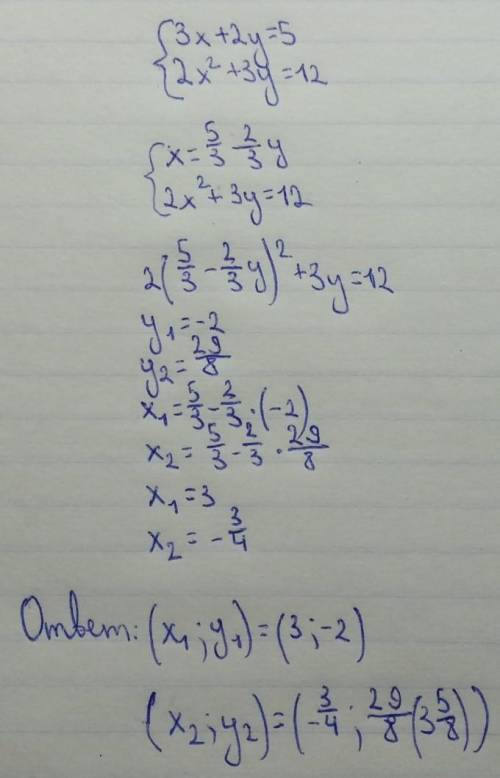 {3x+2y=5
{2x²+3y=12
{x=5/3-2/3y
{2x²+3y=12
2(5/3-2/3y)²+3y=12
y₁=-2
y₂=29/8
x₁=5/3-2/3·(-2)
x₂=5/3-2/3·29/8
x₁=3
x₂=-3/4
Ответ: (x₁;y₁)=(3;-2)
(x₂;y₂)=(-3/4;29/8(3 5/8))